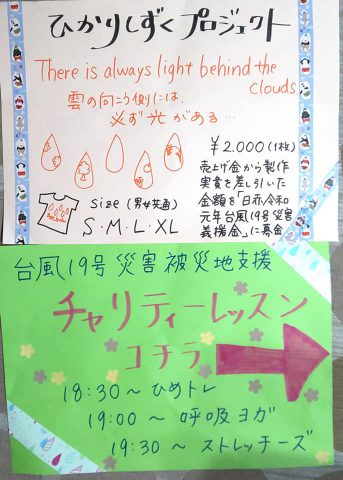 ひかりしずくプロジェクト
There is always light behind the
clouds.
雲の向こう側には、
必ず光がある…
¥2,000(1枚)
売上げ金から製作
実費を差し引いた
金額を「日赤令和
元年台風19号災害
義援金」に募金
size(男女共通)
S・M・L・XL
台風19号災害被災地支援
チャリティーレッスン
コチラ
18:30〜ひめトレ
19:00〜呼吸ヨガ
19:30〜ストレッチーズ